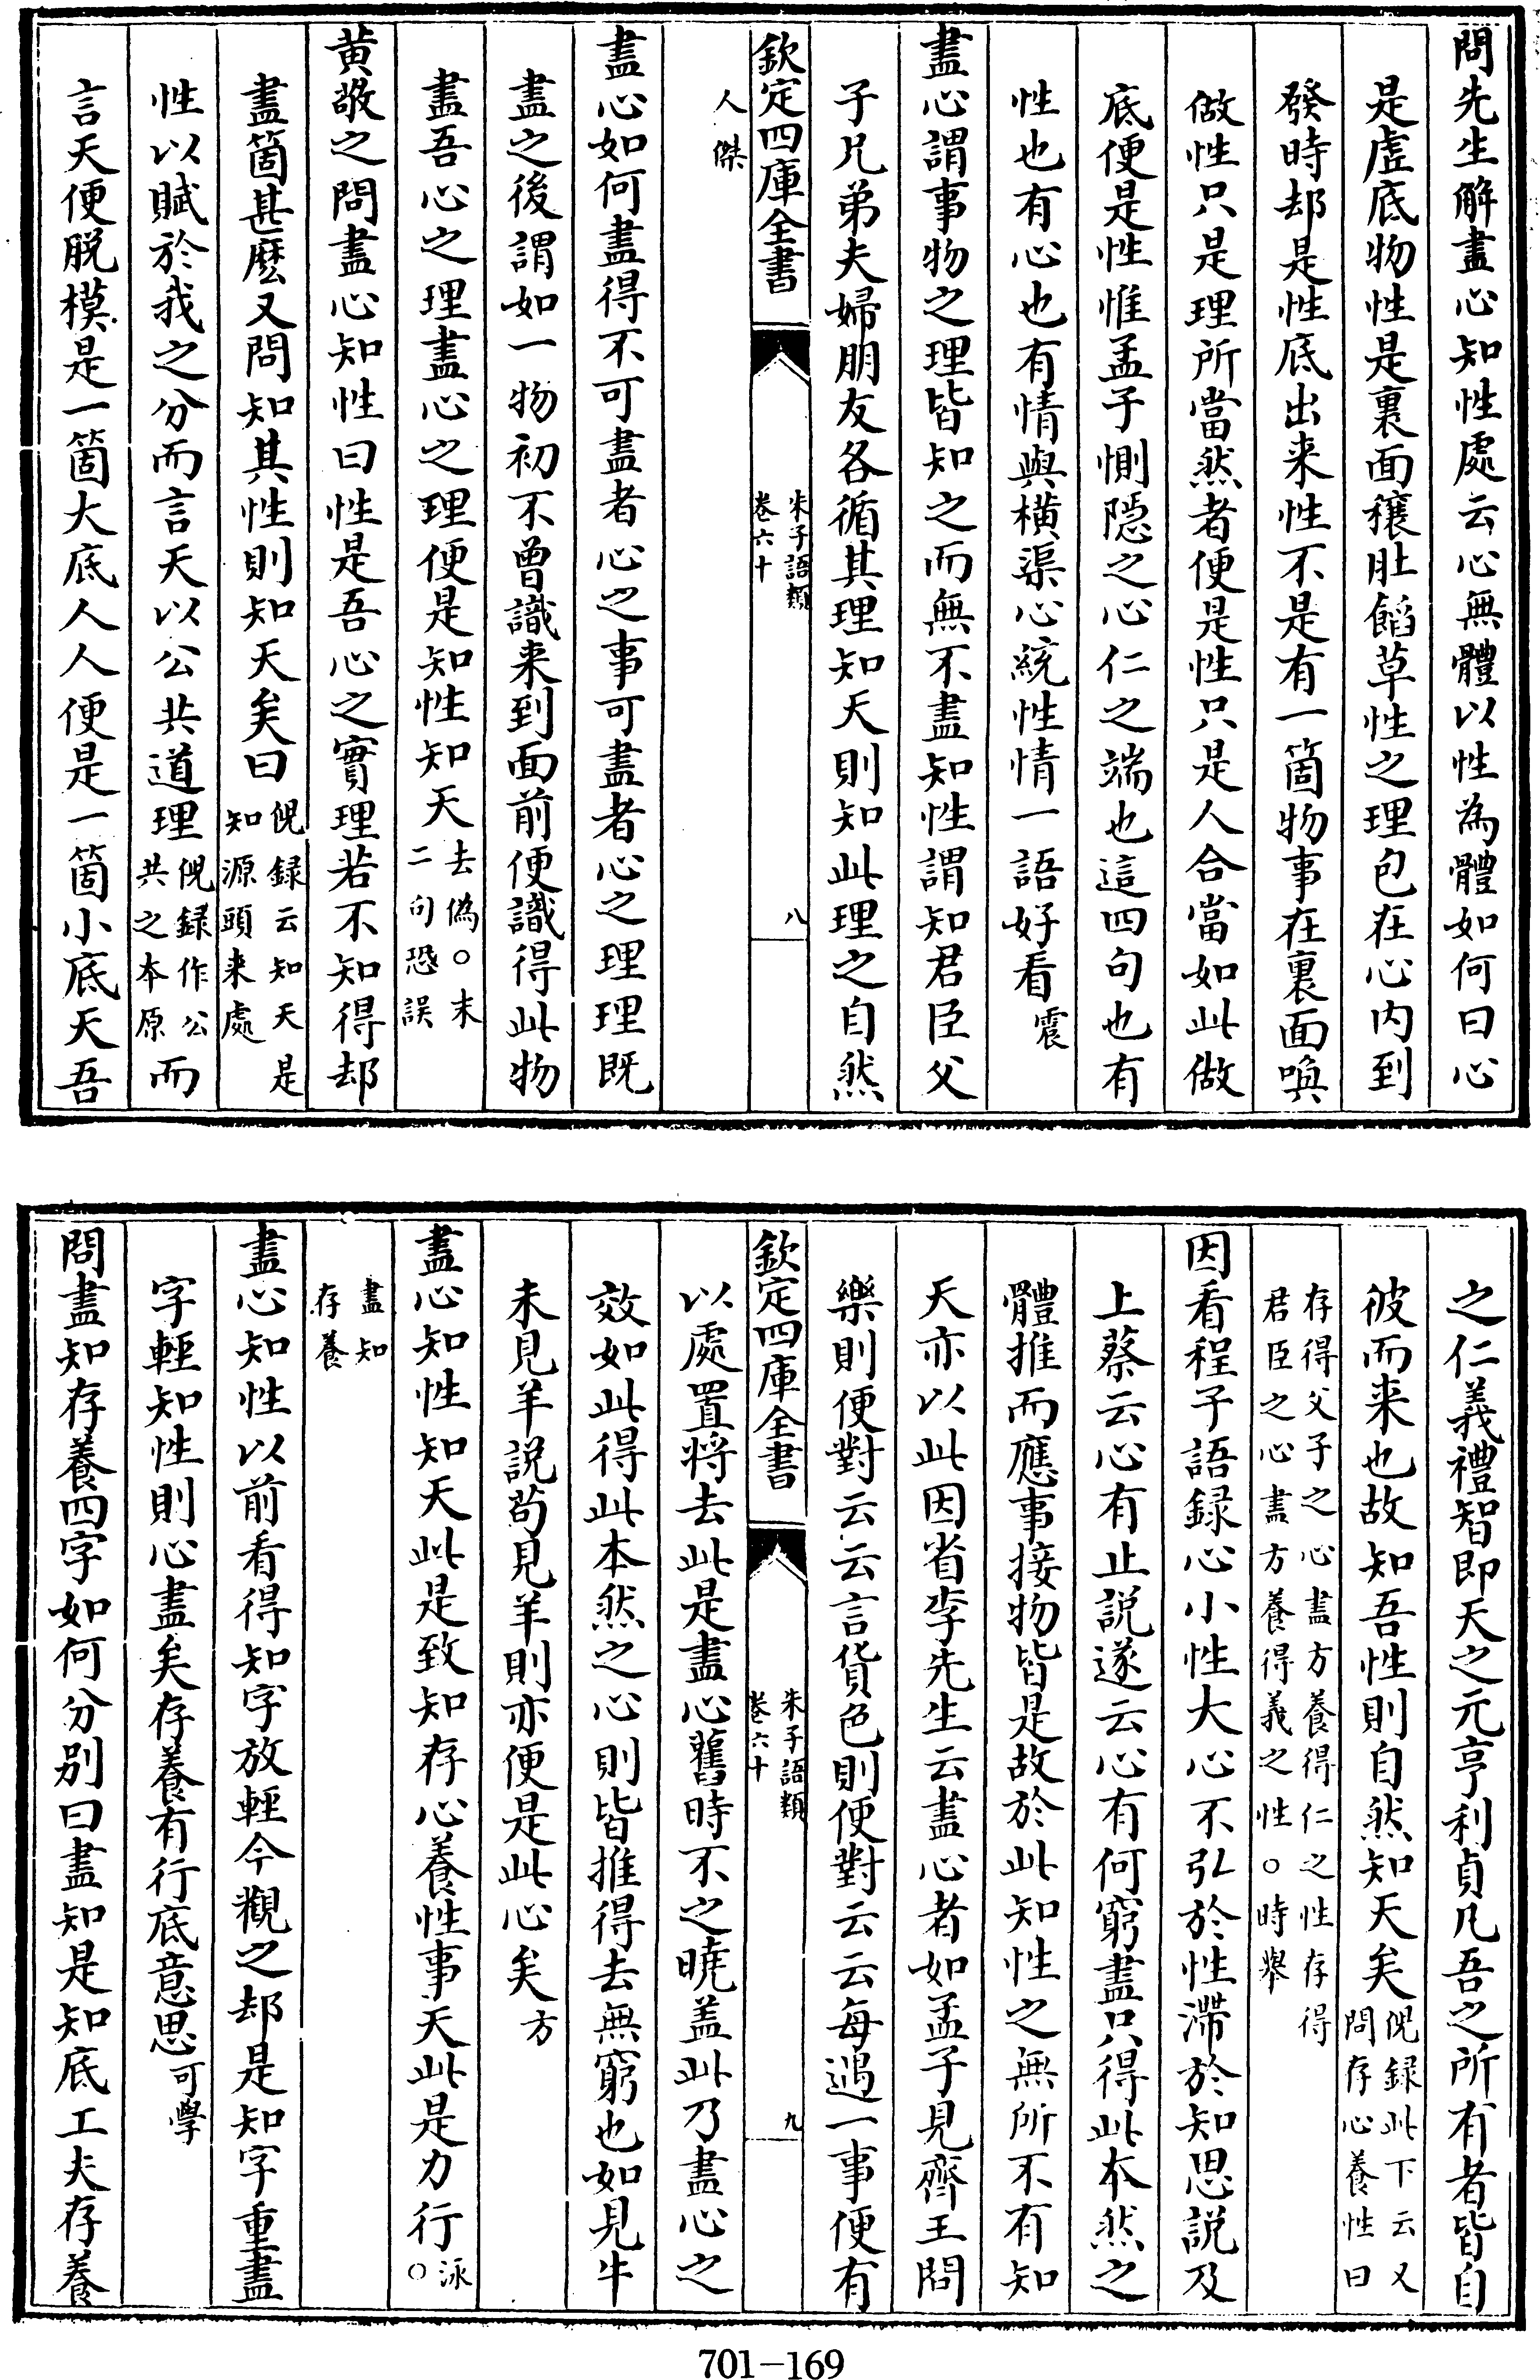 問先生解盡心知性處云心無體以性為體如何曰心
是虛底物性是裏面穰肚餡草性之理包在心内到
發時却是性底出来性不是有一箇物事在裏面喚
做性只是理所當然者便是性只是人合當如此做
底便是性惟孟子惻隠之心仁之端也這四句也有
性也有心也有情與橫渠心統性情一語好看震
盡心謂事物之理皆知之而無不盡知性謂知君臣父
子兄弟夫婦朋友各循其理知天則知此理之自然
欽定四庫全書
朱子語類
卷六十
八
人傑
盡心如何盡得不可盡者心之事可盡者心之理理既
盡之後謂如一物初不曾識来到面前便識得此物
盡吾心之理盡心之理便是知性知天去偽○末
二句恐誤
黄敬之問盡心知性曰性是吾心之實理若不知得却
盡箇甚麽又問知其性則知天矣曰倪録云知天是
知源頭来處
性以賦於我之分而言天以公共道理倪録作公
共之本原而
言天便脱模是一箇大底人人便是一箇小底天吾
之仁義禮智即天之元亨利貞凡吾之所有者皆自
彼而来也故知吾性則自然知天矣倪録此下云又
問存心養性曰
存得父子之心盡方養得仁之性存得
君臣之心盡方養得義之性○時舉
因看程子語録心小性大心不弘於性滯於知思説及
上蔡云心有止説遂云心有何窮盡只得此本然之
體推而應事接物皆是故於此知性之無所不有知
天亦以此因省李先生云盡心者如孟子見齊王問
樂則便對云云言貨色則便對云云每遇一事便有
欽定四庫全書
朱子語類
卷六十
九
以處置将去此是盡心舊時不之曉盖此乃盡心之
效如此得此本然之心則皆推得去無窮也如見牛
未見羊説苟見羊則亦便是此心矣方
盡心知性知天此是致知存心養性事天此是力行泳
○
盡知
存養
盡心知性以前看得知字放輕今觀之却是知字重盡
字輕知性則心盡矣存養有行底意思可學
問盡知存養四字如何分别曰盡知是知底工夫存養
701－169